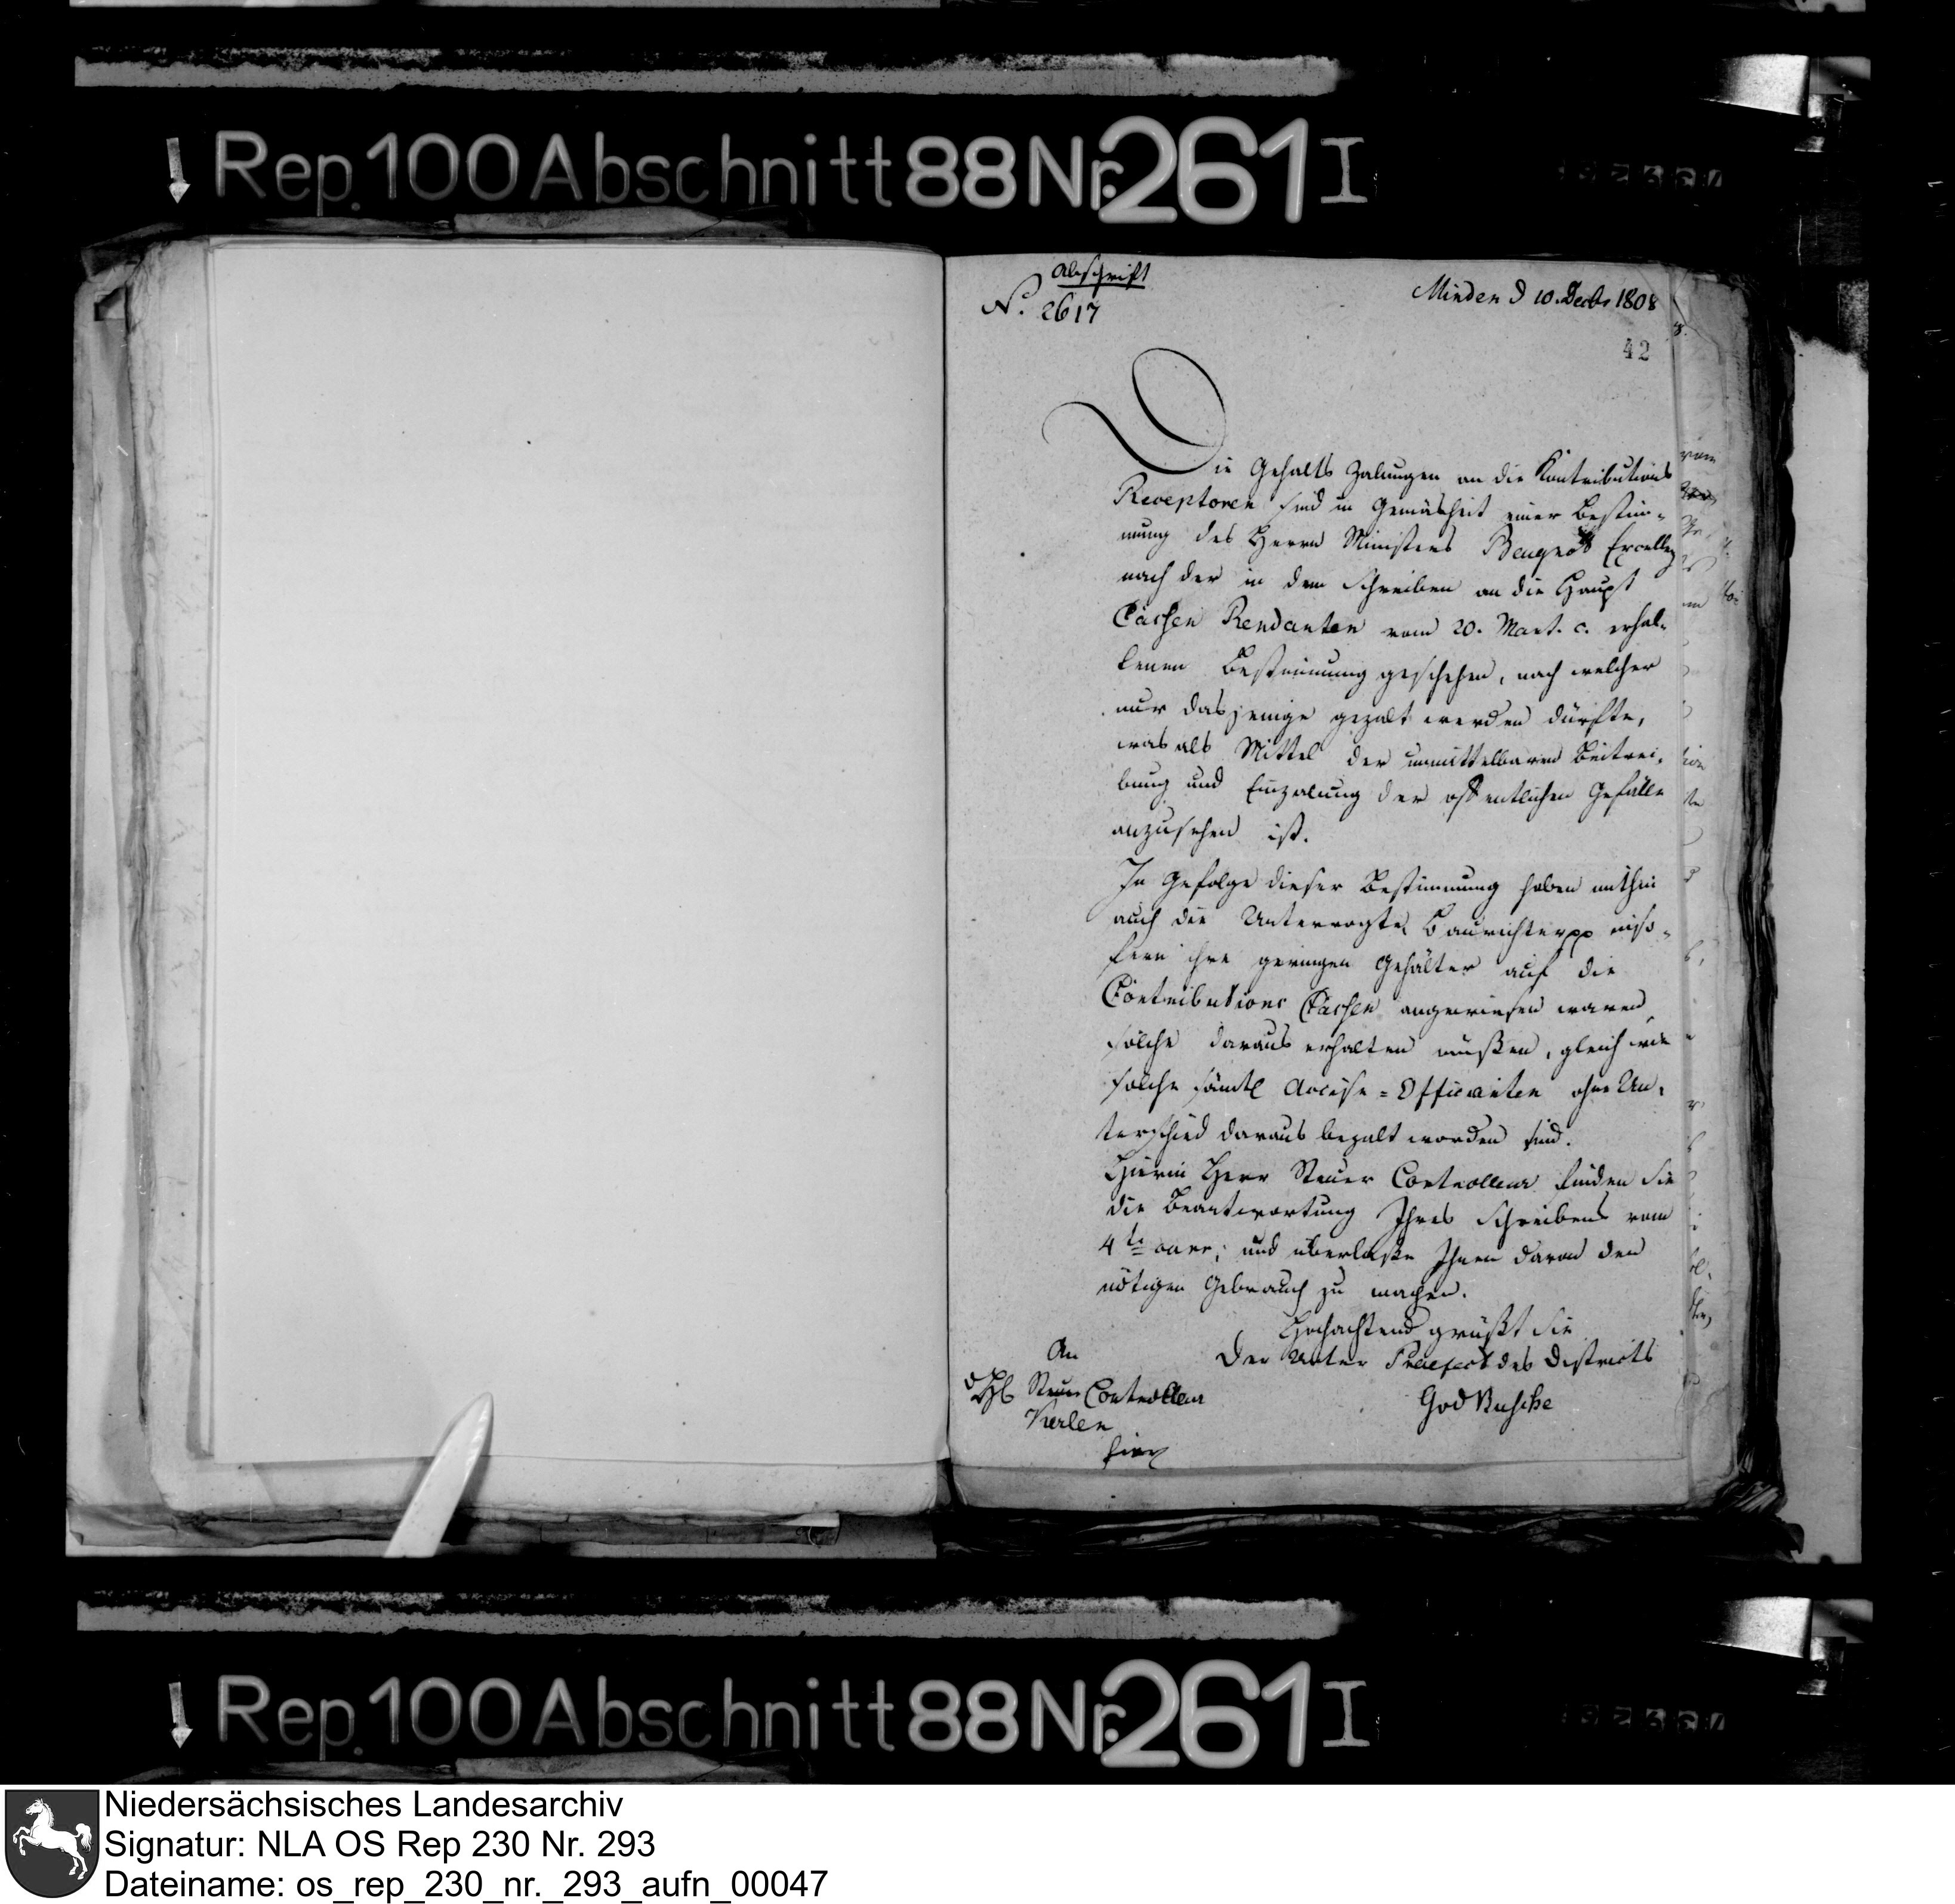 Rep. 100 Abschnitt 88 Nr. 261 I
Abschrift
No. 2617
Minden d 10. Decbr 1808
42
Die Gehalts Zalungen an die Kontributions
Receptoren sind in Gemäsheit einer Bestim-
mung des Herrn Ministers Beugnots Excellenz
nach der in dem Schreiben an die Haupt
Cassen Rendanten vom 20. Mart. c. erhal-
tenen Bestimmung geschehen, nach welcher
nur dasjenige gezalt werden dürfte,
was als Mittel der unmittelbaren Beitrei-
bung und Einzalung der öffentlichen Gefälle
anzusehen ist.
In Gefolge dieser Bestimmung haben mithin
auch die Untervogte Baurichter pp inso-
fern ihre geringen Gehälter auf die
Contributions Cassen angewiesen waren,
solche daraus erhalten müßen, gleich wie
solche sämtl Accise-Officianten ohne Un-
terschied daraus bezalt worden sind.
Hierin Herr Steuer Controlleur finden Sie
die Beantwortung Ihres Schreibens vom
4te curr; und überlaße Ihnen davon den
nötigen Gebrauch zu machen.
Hochachtend grüßt Sie
Der Unter Praefect des Districts
God Busche
An
d H Steuer Controlleur
Kerlen
hier
Rep. 100 Abschnitt 88 Nr. 261 I
Niedersächsisches Landesarchiv
Signatur: NLA OS Rep 230 Nr. 293
Dateiname: os_rep_230_nr._293_aufn_00047